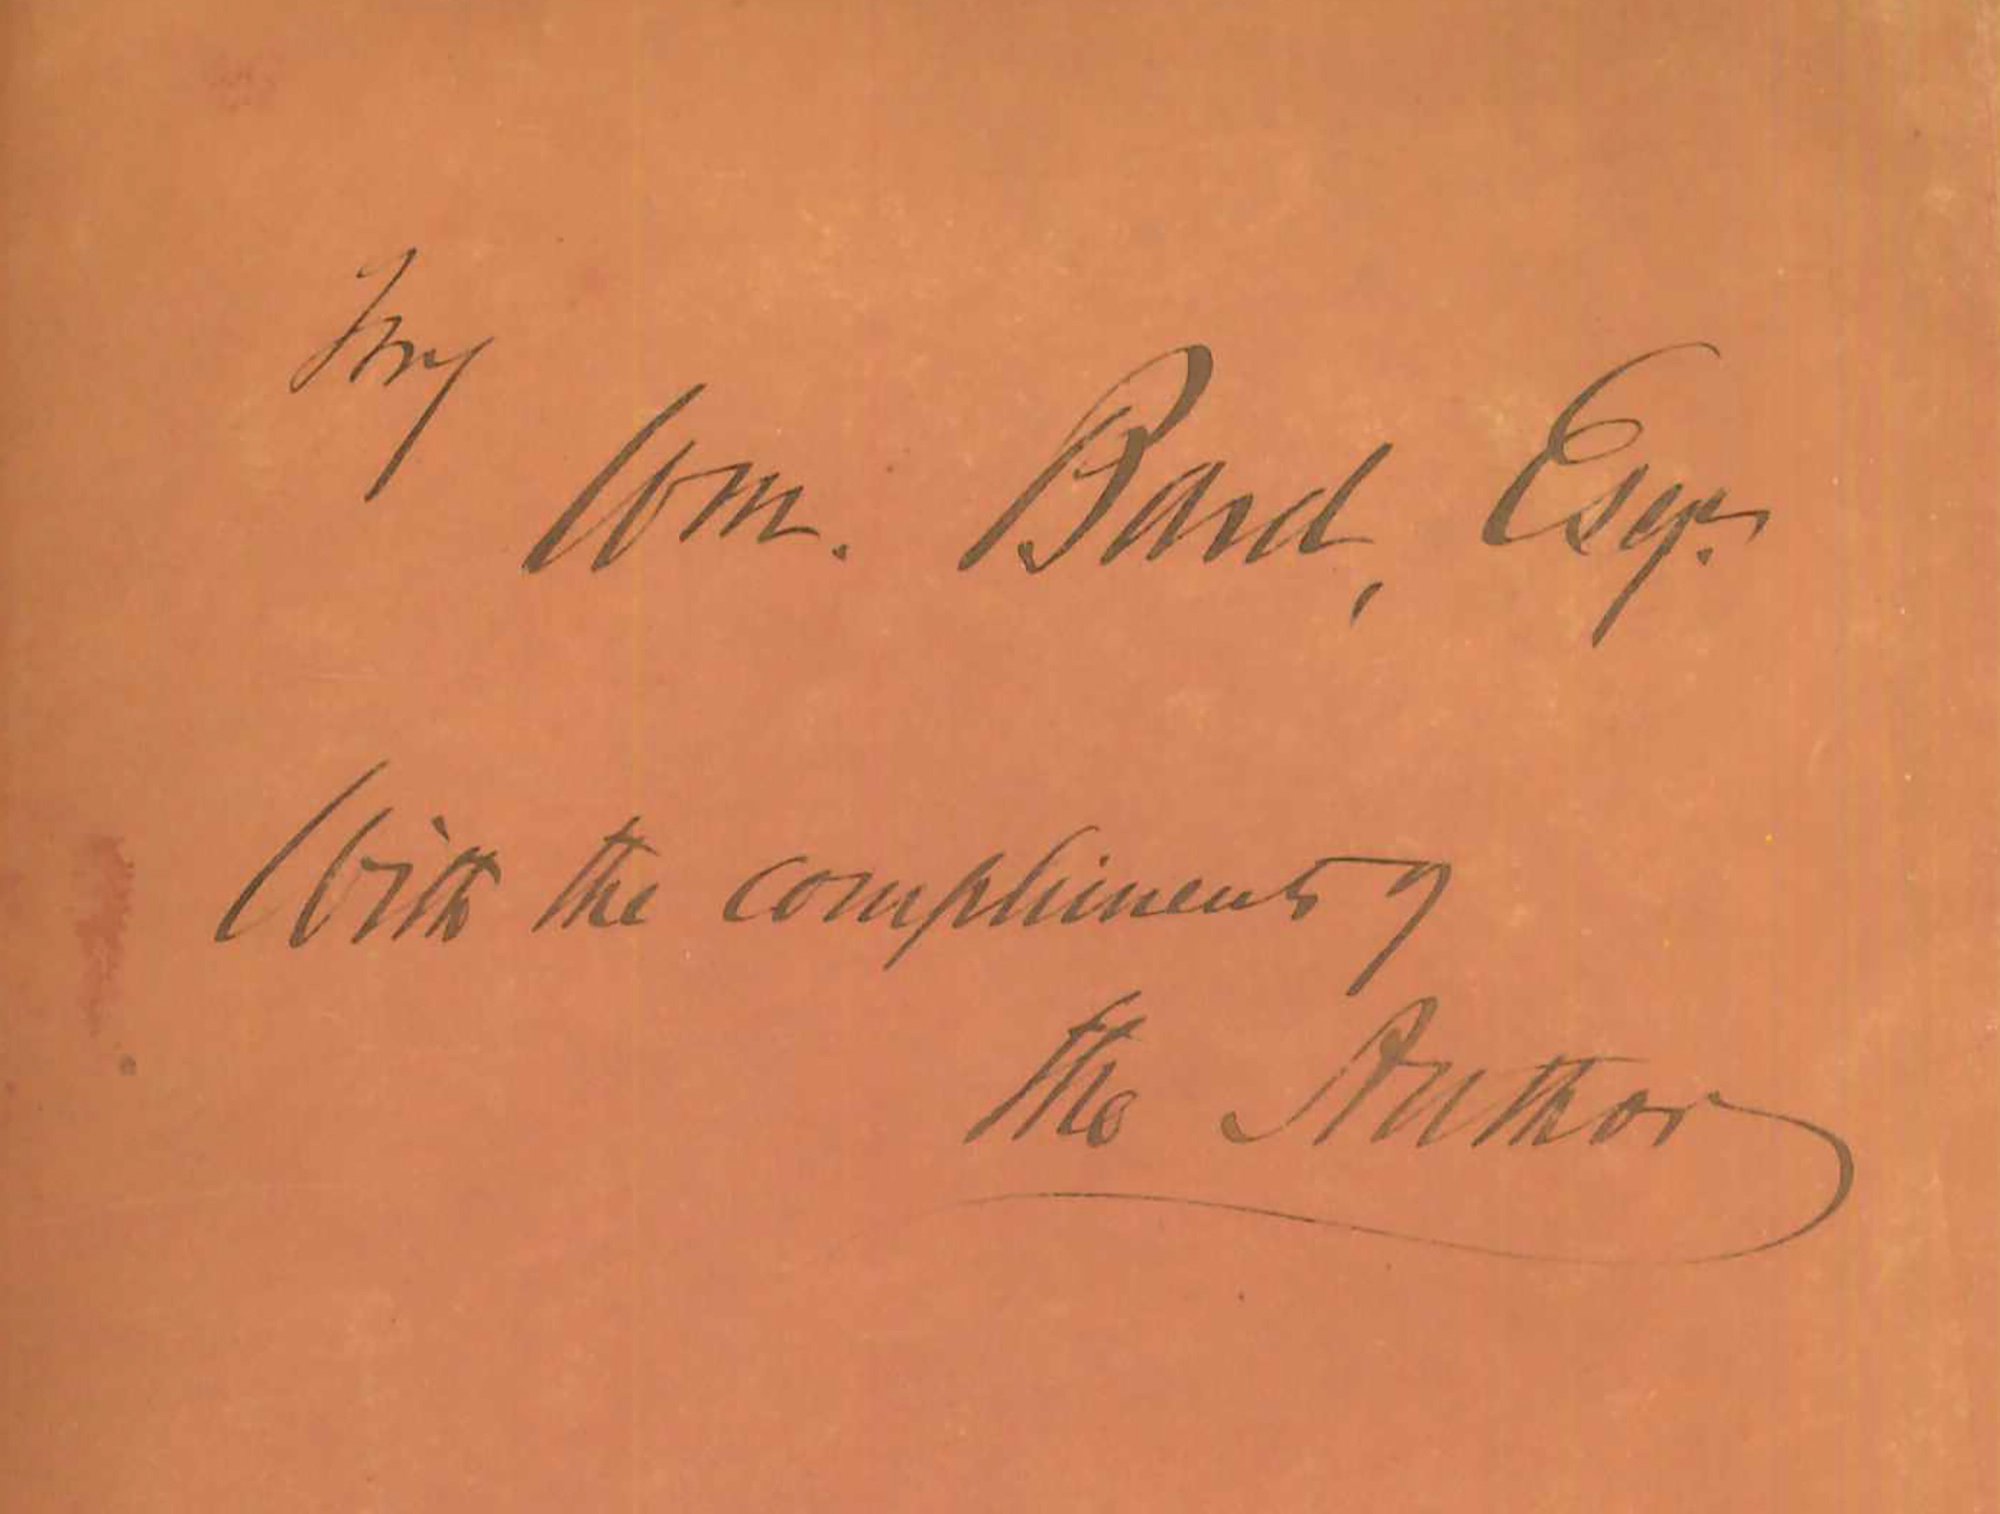 Wm. Bard, Esqr.
With the compliments of
the Author